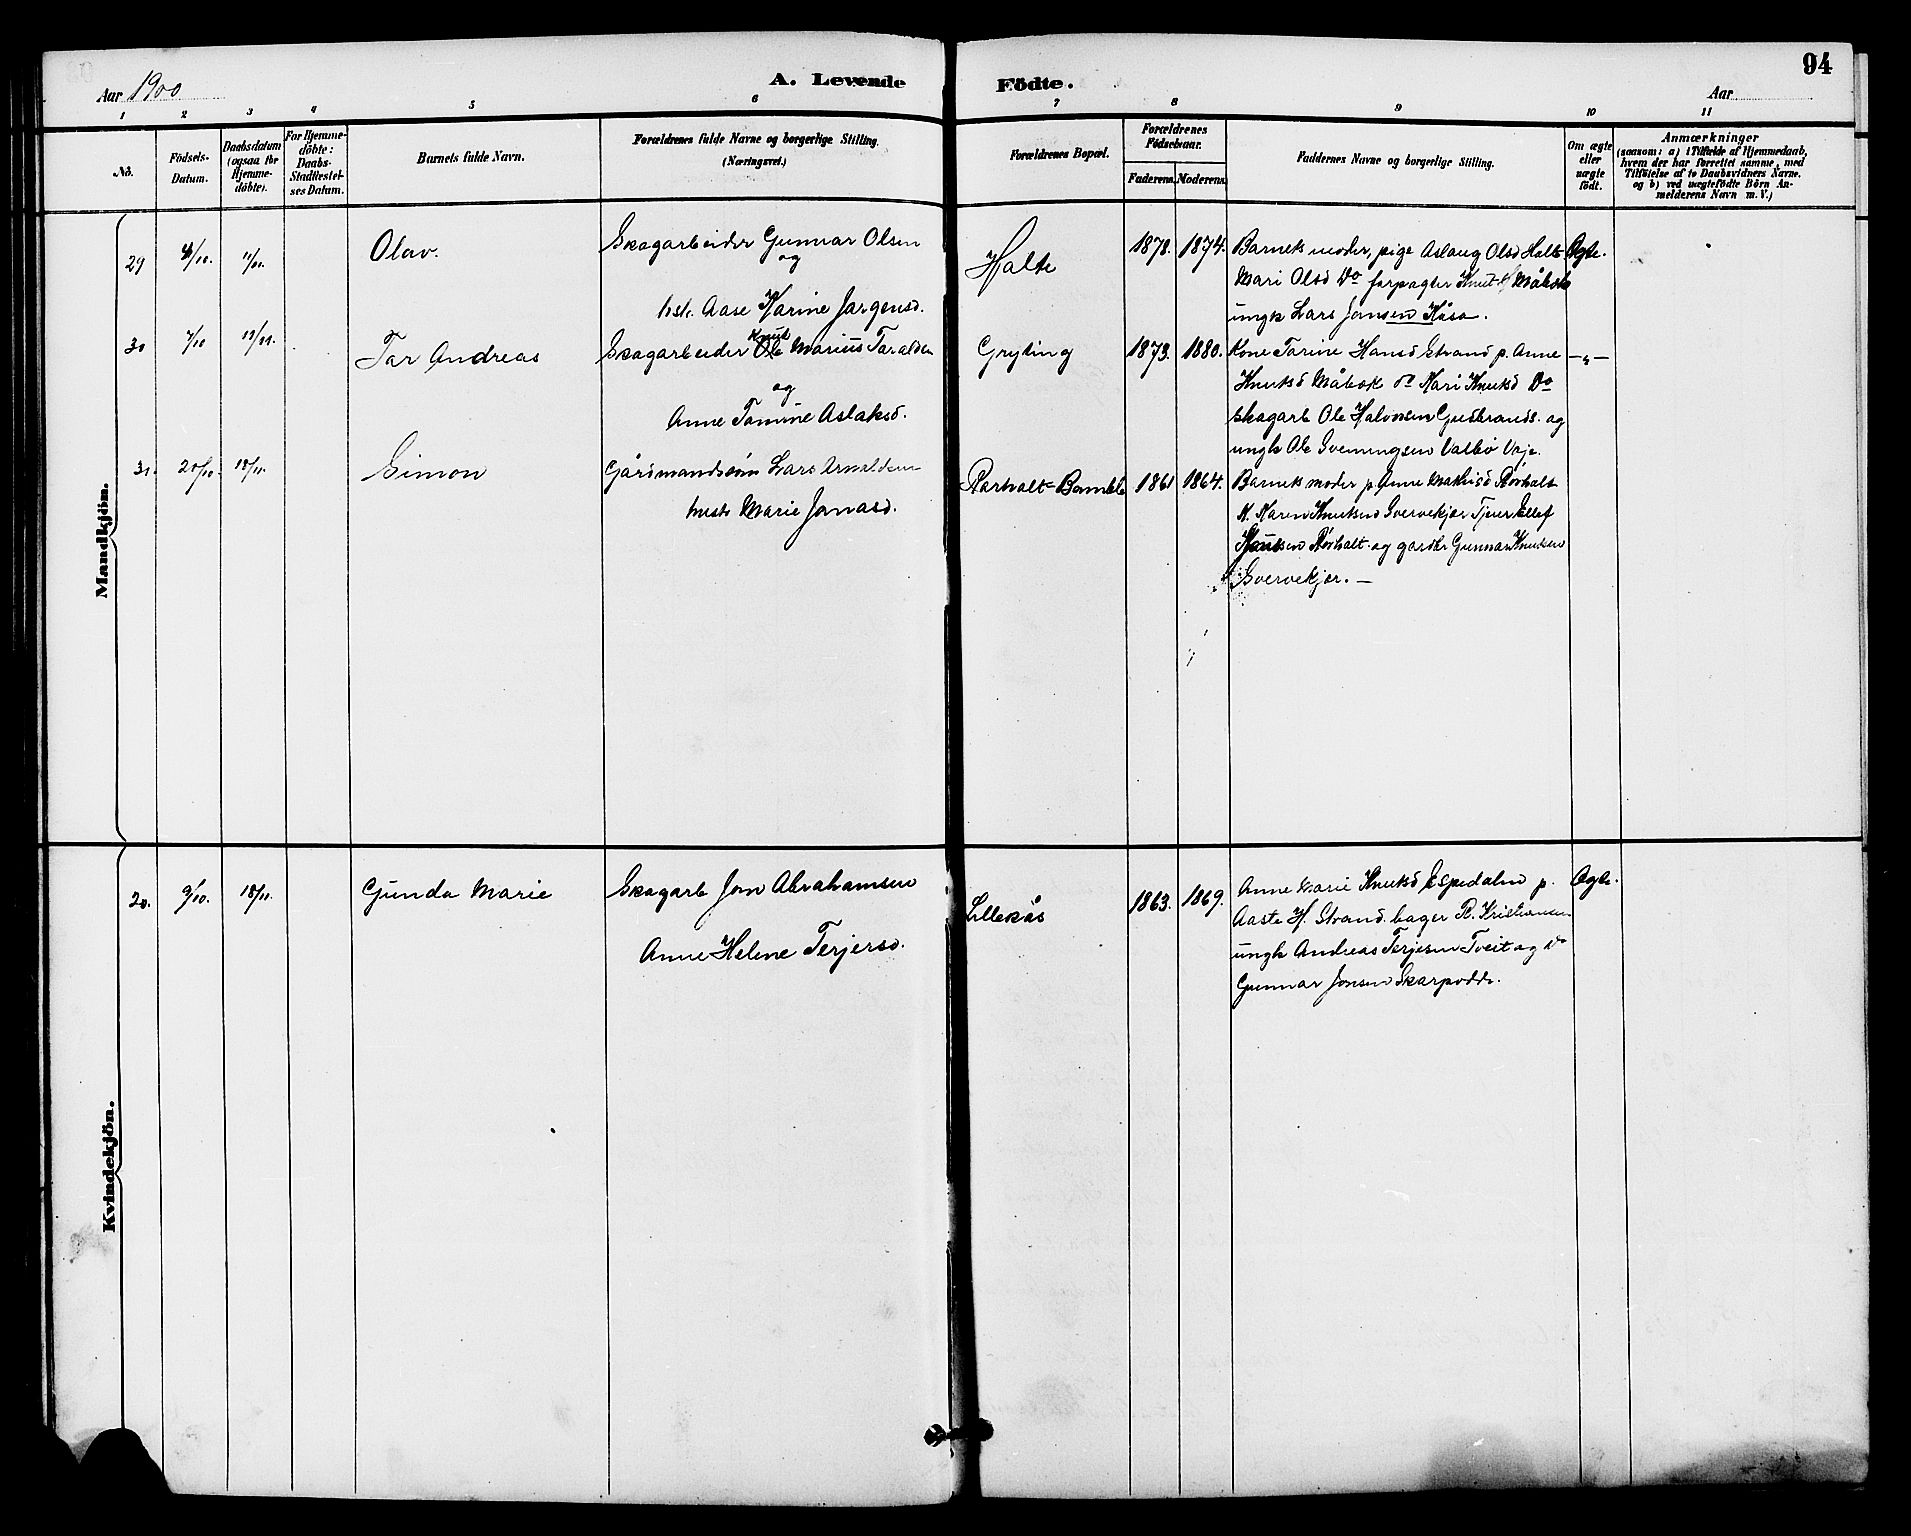 94
Aar 1900
A. Levende Födte.
Aar
1 2 3 4 5 6 7 8 9 10 11
No.
Födsels-Datum.
Daabsdatum (ogsaa for Hjemme-döbte).
For Hjemme-döbte: Daabs-Stadfestel-ses Datum.
Barnets fulde Navn.
Forældrenes fulde Navne og borgerlige Stilling. (Næringsvei.)
Forældrenes Bopæl.
Forældrenes Födselsaar.
Faderens. Moderens.
Faddernes Navne og borgerlige Stilling.
Om ægte eller uægte födt.
Anmærkninger
(saasom: a) i Tilfælde af Hjemmedaab,
hvem der har forrettet samme, med
Tilföielse af to Daabsvidners Navne.
og b) ved uægtefödte Börn An-
melderens Navn m. V.)
Mandkjön.
29 4/10. 11/11. Olav.
Skogarbeider Gunnar Olsen
og
hst. Aase Karine Jørgensd.
Holte
1878. 1874.
Barnets moder, pige Aslaug Olsd Holte
Mari Olsd Do forpagter Knut Måbek
ungk Lars Jonsen Kåsa.
Ægte.
30 7/10 11/11. Tor Andreas
Skogarbeider Knut Marius Taralden
og
Anne Tomine Aslaksd.
Gryting
1873. 1880.
Kone Torine Hansd Strand p. Anne
Knutsd Måbek Kari Knutsd Do
skogarb Ole Halvorsen Gudbrands. og
ungk Ole Sveinungsen Valbø Veje.
—"—
31. 20/10. 18/11. Simon
Gårdmandssøn Lars
hustr Marie Jonasd.
Rørholt Bamble
1861 1864.
Barnets moder p. Anne Mathisd Rørholt
K. Karen Knutsen Svervekjær Tjener Ellef
Knutsen Rørholt og gardbr Gunnar Knudsen
Svervekjær. —
Kvindekjön.
20. 9/10. 18/11. Gunda Marie
Skogarb Jon Abrahamsen
Anne Helene Terjersd.
Lillekås
1863. 1869.
Anne Marie Knutsd Espedalen p.
Aaste H. Strand. bager R. Kristiansen
ungk Andreas Terjesen Tveit og do
Gunnar Jonsen Skarpodde.
Ægte.